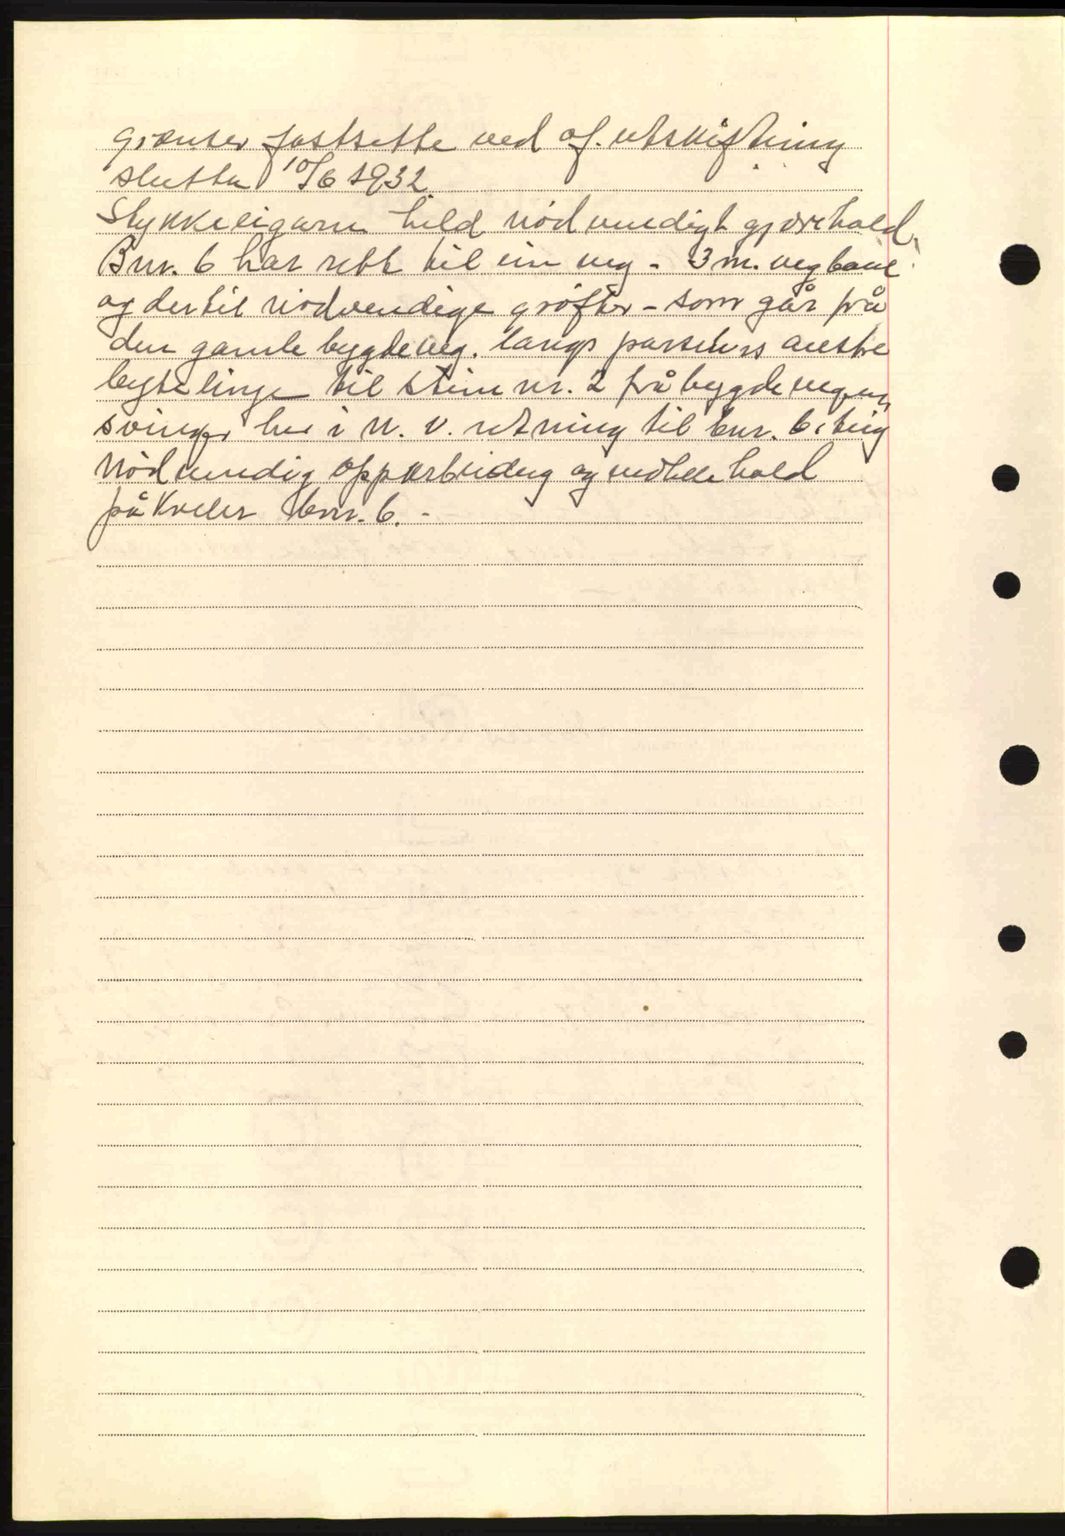 grenser fastsette ved of. utskiftning
slutta 10/6 1932
Stykkeeigaren held nödvendigt gjærehald.
Bnr. 6 har rett til ein veg - 3 m. vegbane
og dertil nödvendige gröfter - som går frå
den gamle bygdeveg. langs parselens austre
bytelinje til stein nr. 2 frå bygdevegen,
svinger her i N. V. retning til bnr. 6. teig
Nödvendig opparbeiding og vedlikehald
på kviler bnr. 6. -